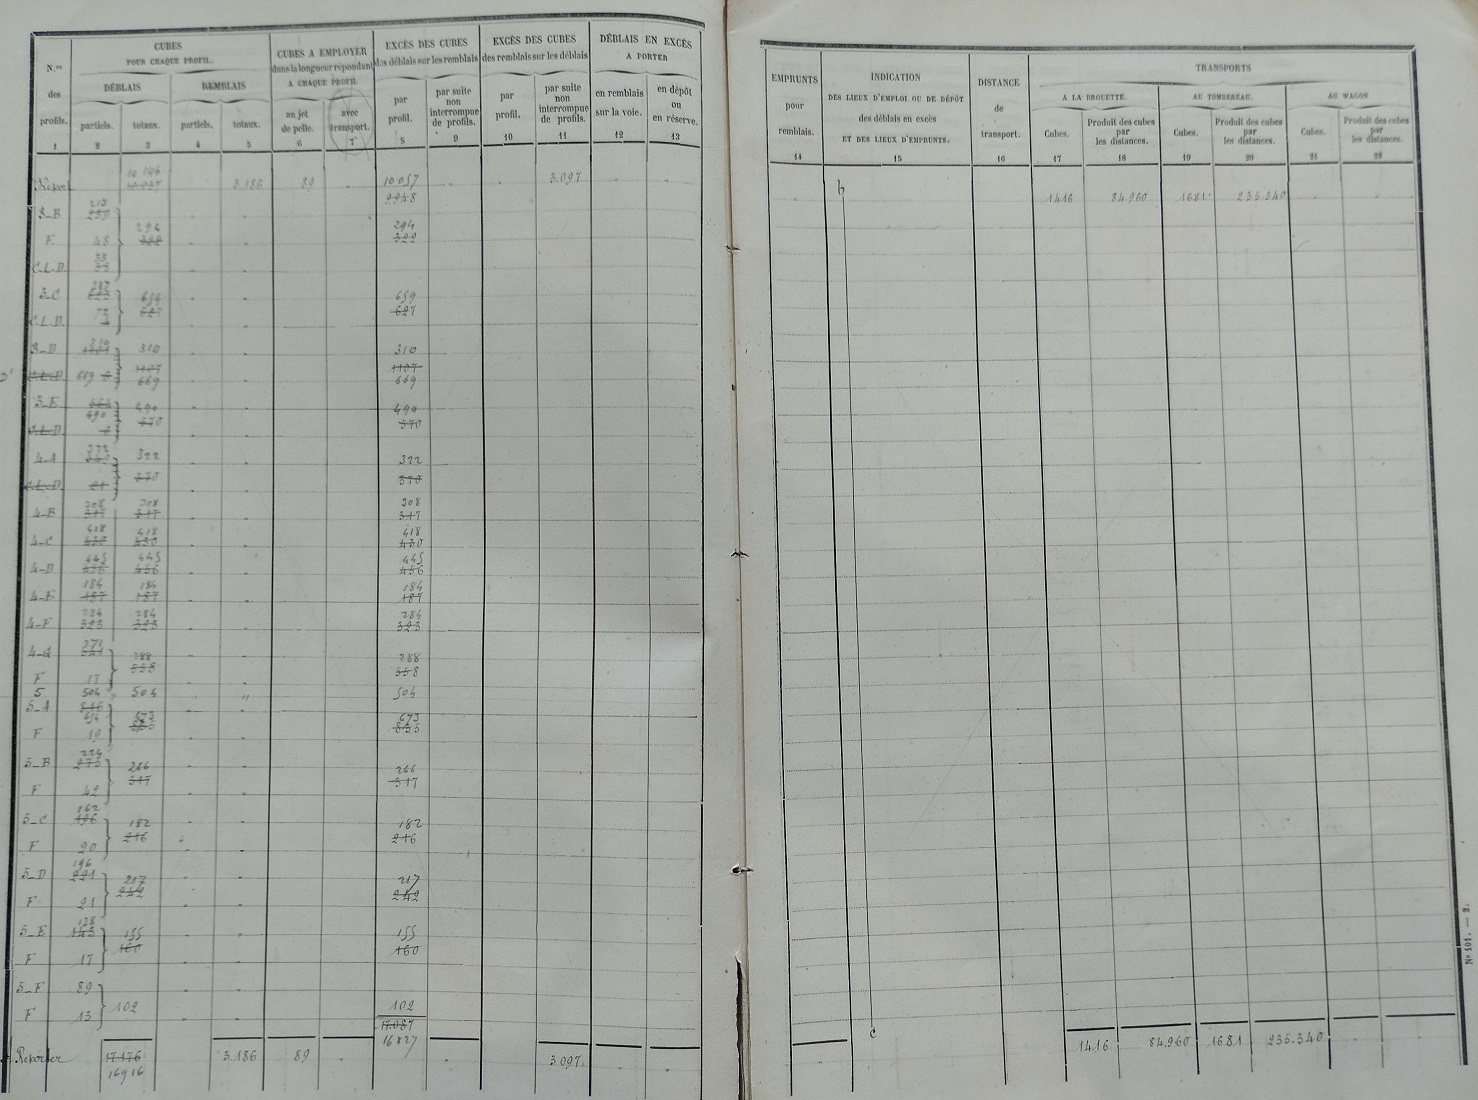 N.os des profils.
CUBES
POUR CHAQUE PROFIL.
DÉBLAIS
REMBLAIS
partiels.
totaux.
partiels.
totaux.
CUBES A EMPLOYER
dans la longueur répondant
A CHAQUE PROFIL
au jet de pelle.
avec transport.
EXCÈS DES CUBES
des déblais sur les remblais
par profil.
par suite non interrompue de profils.
EXCÈS DES CUBES
des remblais sur les déblais
par profil.
par suite non interrompue de profils.
DÉBLAIS EN EXCÈS
A PORTER
en remblais sur la voie.
en dépôt ou en réserve.
1 2 3 4 5 6 7 8 9 10 11 12 13
Report 10 146 3.186 89 10 057 3.097
9948
3_B 213
239
F 48 294 294
322 322
C.L.D. 33
35
3_C 659 659
627 627
C.L.D.
3_D 310 310 310
1107 1107
C.L.D. 669 669 669
3_E 490 490 490
570 570
C.L.D
4_A 322 322 322
370 370
C.L.D 21
4_B 308 308 308
317 317 317
4_C 418 418 418
430 430 430
4_D 445 445 445
456 456 456
4_E 184 184 184
187 187 187
4_F 284 284 284
323 323 323
4_G 271 288 288
358 358
F 17
5 504 504 504
5_A 654 673 673
835 835
F 19
5_B 224 266 266
275 317 317
F 42
5_C 162 182 182
196 216 216
F 20
5_D 196 217 217
221 242 242
F 21
5_E 138 155 155
143 160 160
F 17
5_F 89
F 13 102 102
17.087
A Reporter 17.176 3.186 89 16 827 3.097
16916
EMPRUNTS pour remblais.
INDICATION
DES LIEUX D'EMPLOI OU DE DÉPÔT
des déblais en excès
ET DES LIEUX D'EMPRUNTS.
DISTANCE de transport.
TRANSPORTS
A LA BROUETTE.
AU TOMBEREAU.
AU WAGON
Cubes.
Produit des cubes par les distances.
Cubes.
Produit des cubes par les distances.
Cubes.
Produit des cubes par les distances.
14 15 16 17 18 19 20 21 22
b 1416 84.960 1681 235.340
c
1416 84.960 1681 235.340
N° 101. — 2.